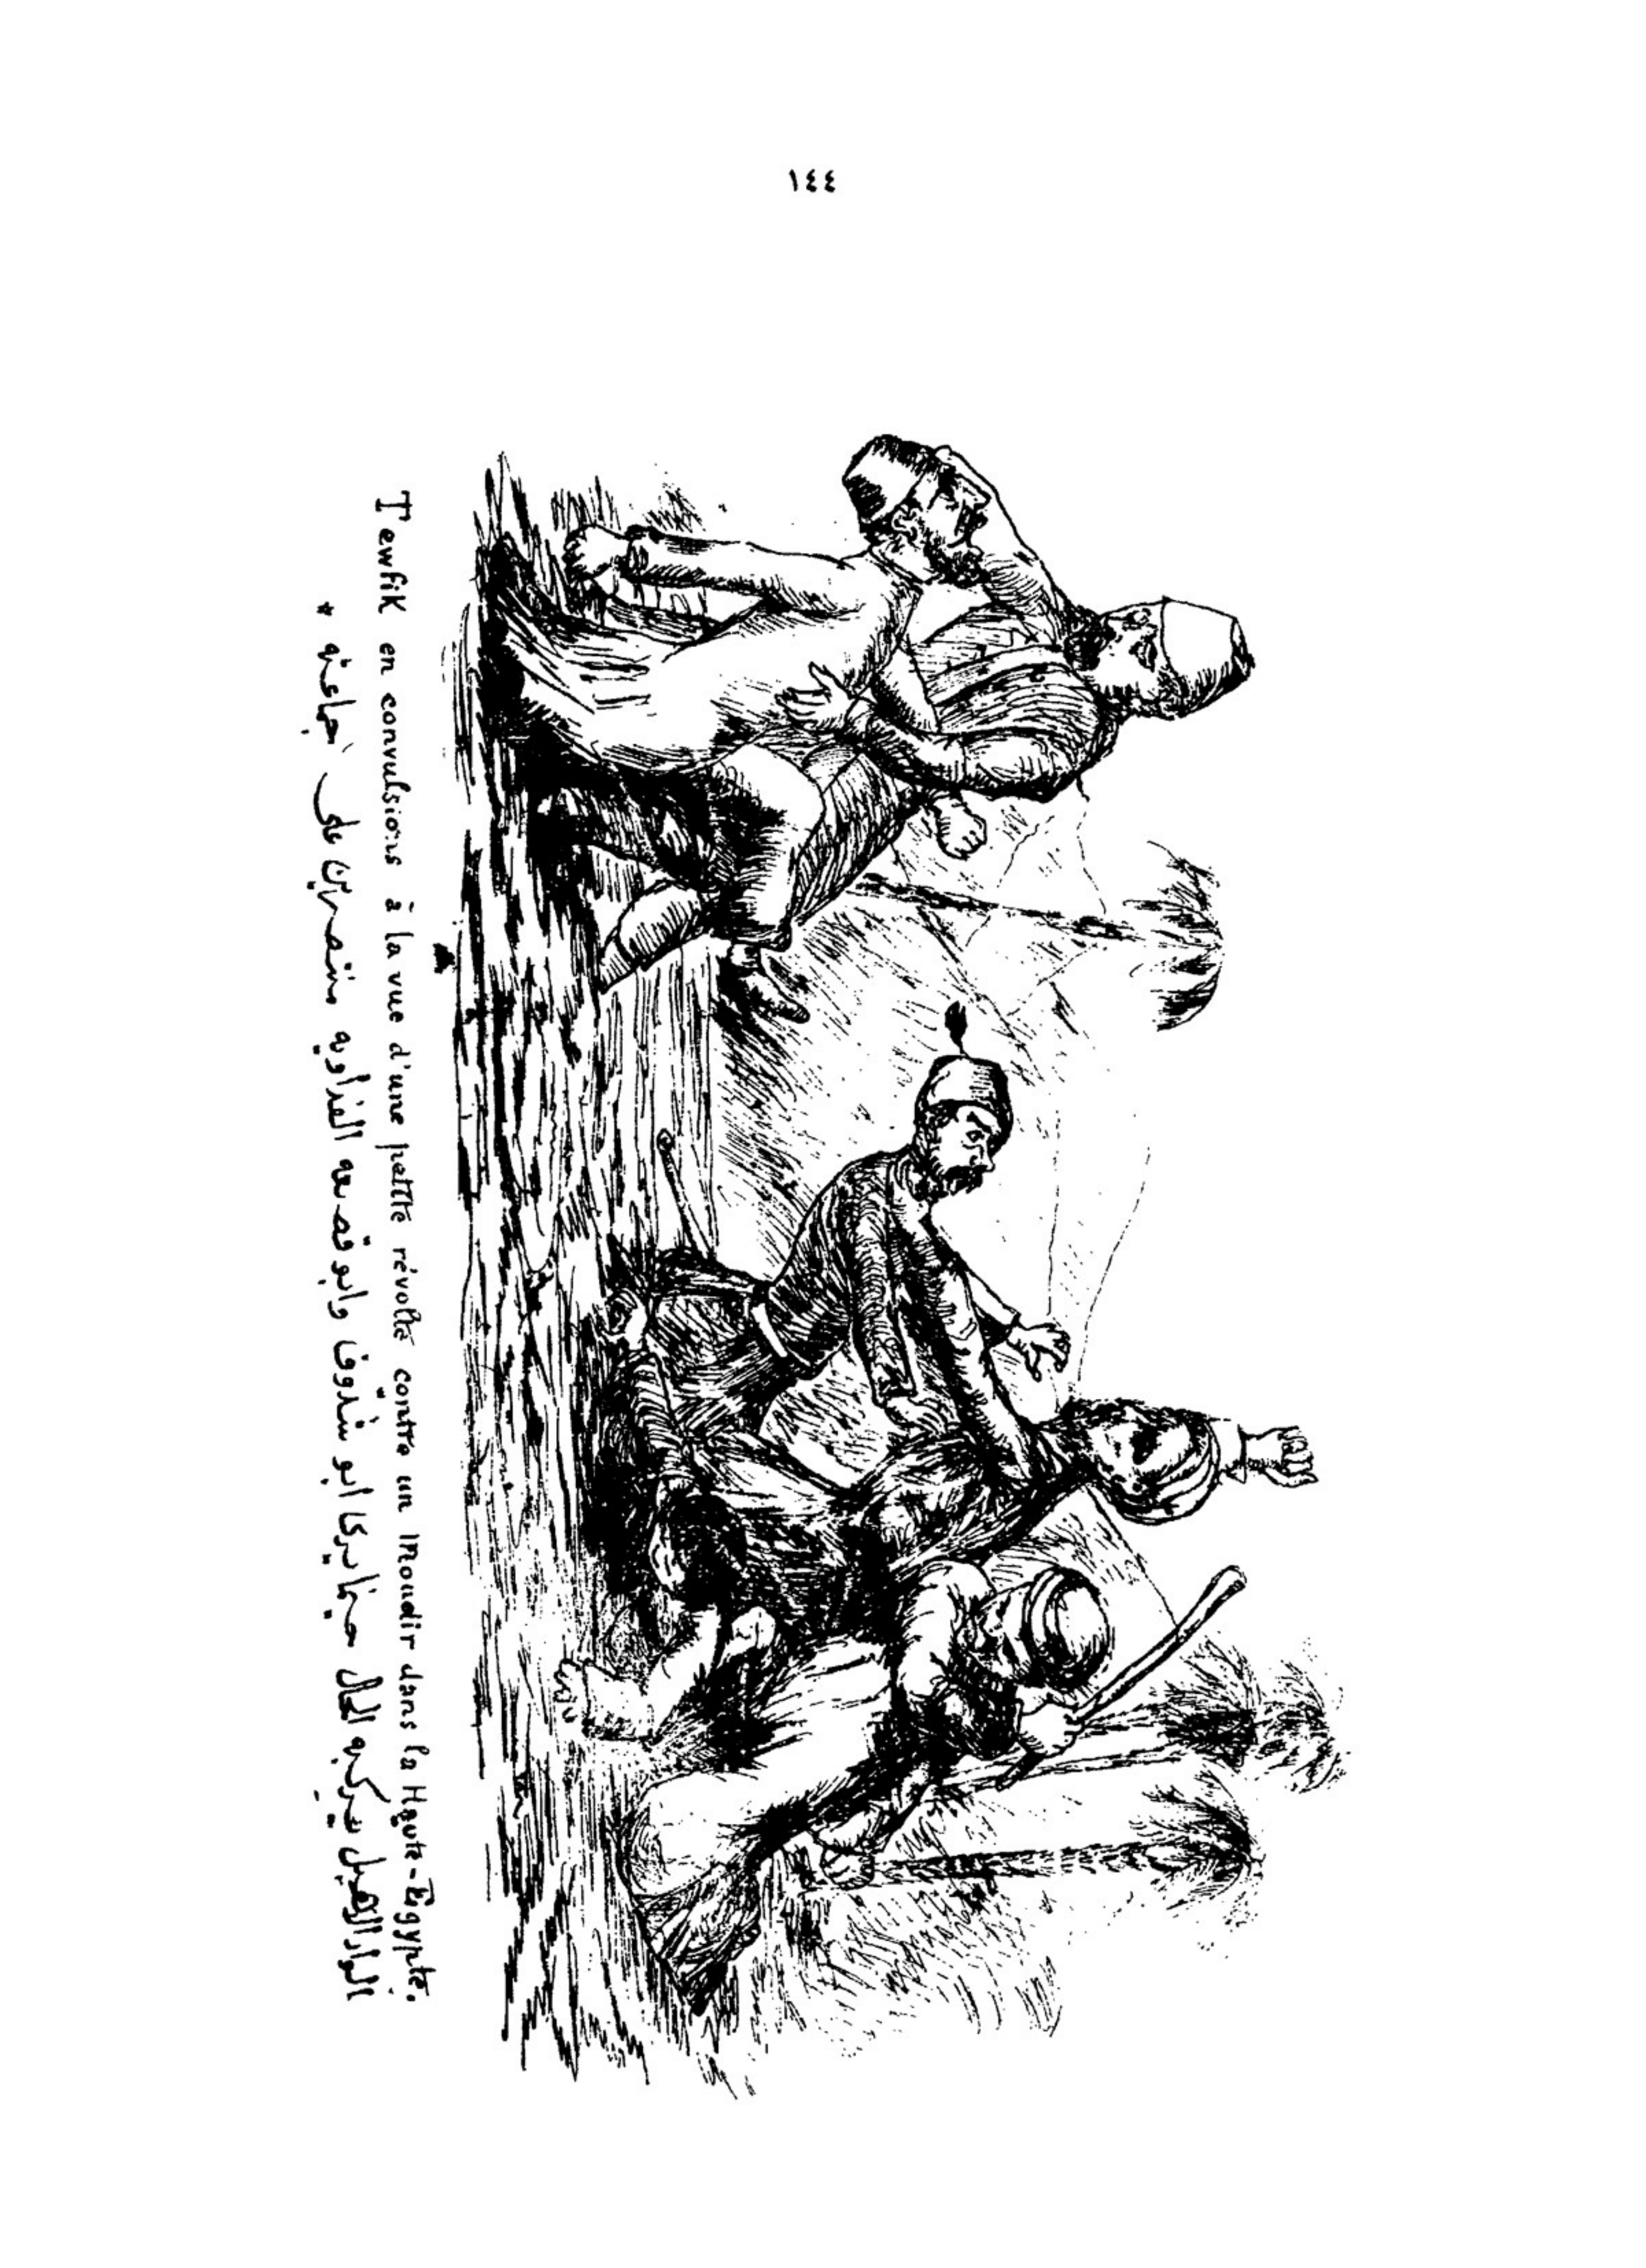 ١٤٤
Tewfik en convulsions à la vue d'une petite révolte contre un moudir dans la Haute-Egypte.
الواد الاهبل بيركبه الحال حينما يرى ابو شدّوف وابو قصعه الفداويه منتصرين على جماعته *